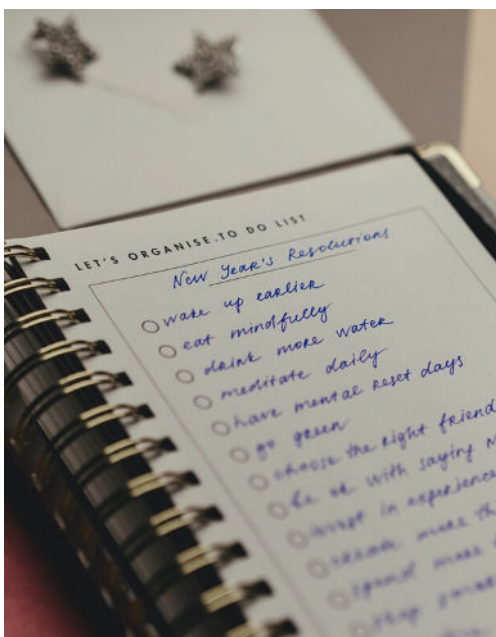 LET'S ORGANISE.TO DO LIST
New Year's Resolutions
wake up earlier
eat mindfully
drink more water
meditate daily
have mental reset days
go green
choose the right friend
be ok with saying
invest in experience
more
more